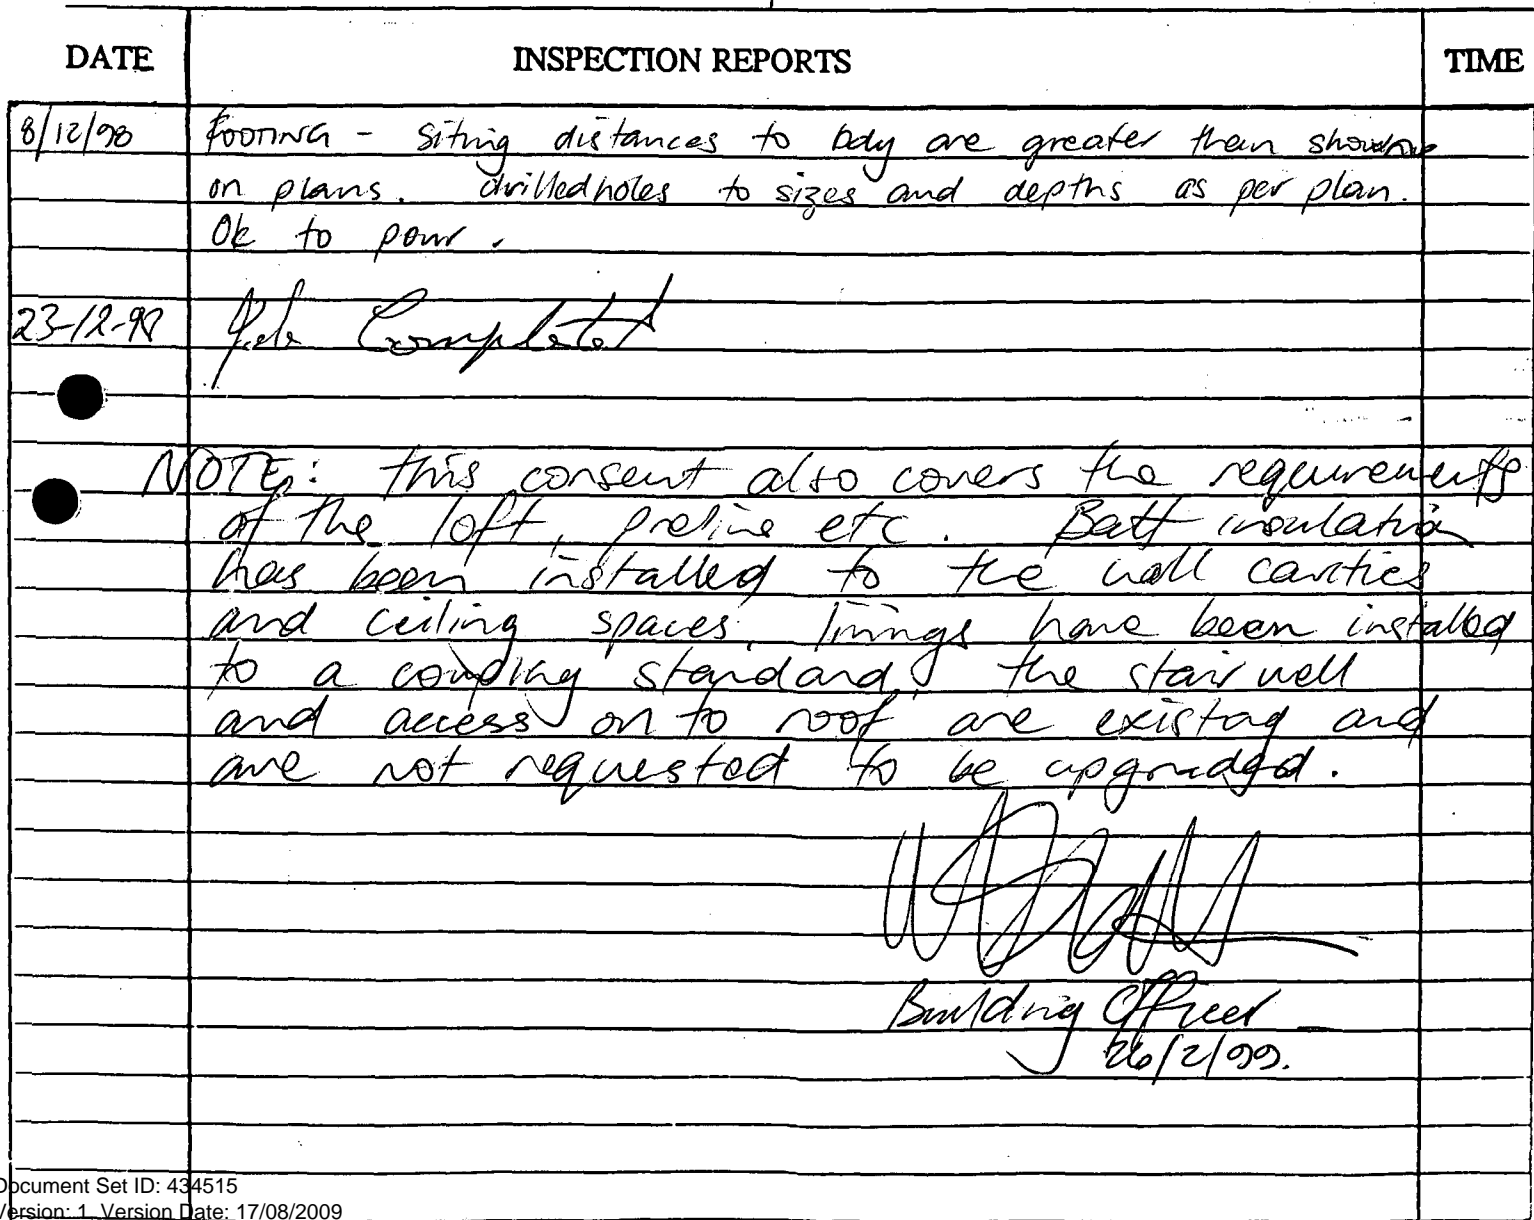 DATE INSPECTION REPORTS TIME
8/12/98 FOOTING - siting distances to bdy are greater than shown
on plans. drilled holes to sizes and depths as per plan.
Ok to pour.
23-12-98 Job Completed
NOTE: this consent also covers the requirements
of the loft, preline etc. Batt insulation
has been installed to the wall cavities
and ceiling spaces, linings have been installed
to a standard, the stairwell
and access on to roof are existing and
are not requested to be upgraded.
Building Officer
26/2/99.
Document Set ID: 434515
Version: 1, Version Date: 17/08/2009